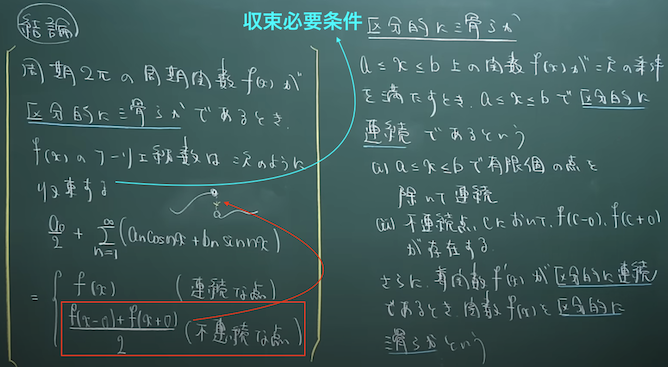 結論
周期2πの周期関数f(x)が
区分的に滑らかであるとき、
f(x)のフーリエ級数は次のように
収束する
a₀/2 + Σ_{n=1}^{∞} (aₙcosnx + bₙsinnx)
= { f(x) (連続な点)
(f(x-0)+f(x+0))/2 (不連続な点)
収束必要条件
区分的に滑らか
a≤x≤b上の関数f(x)が次の条件
を満たすとき、a≤x≤bで区分的に
連続であるという
(i) a≤x≤bで有限個の点を
除いて連続
(ii) 不連続点cにおいて、f(c-0), f(c+0)
が存在する
さらに、導関数f'(x)が区分的に連続
であるとき、関数f(x)を区分的に
滑らかという